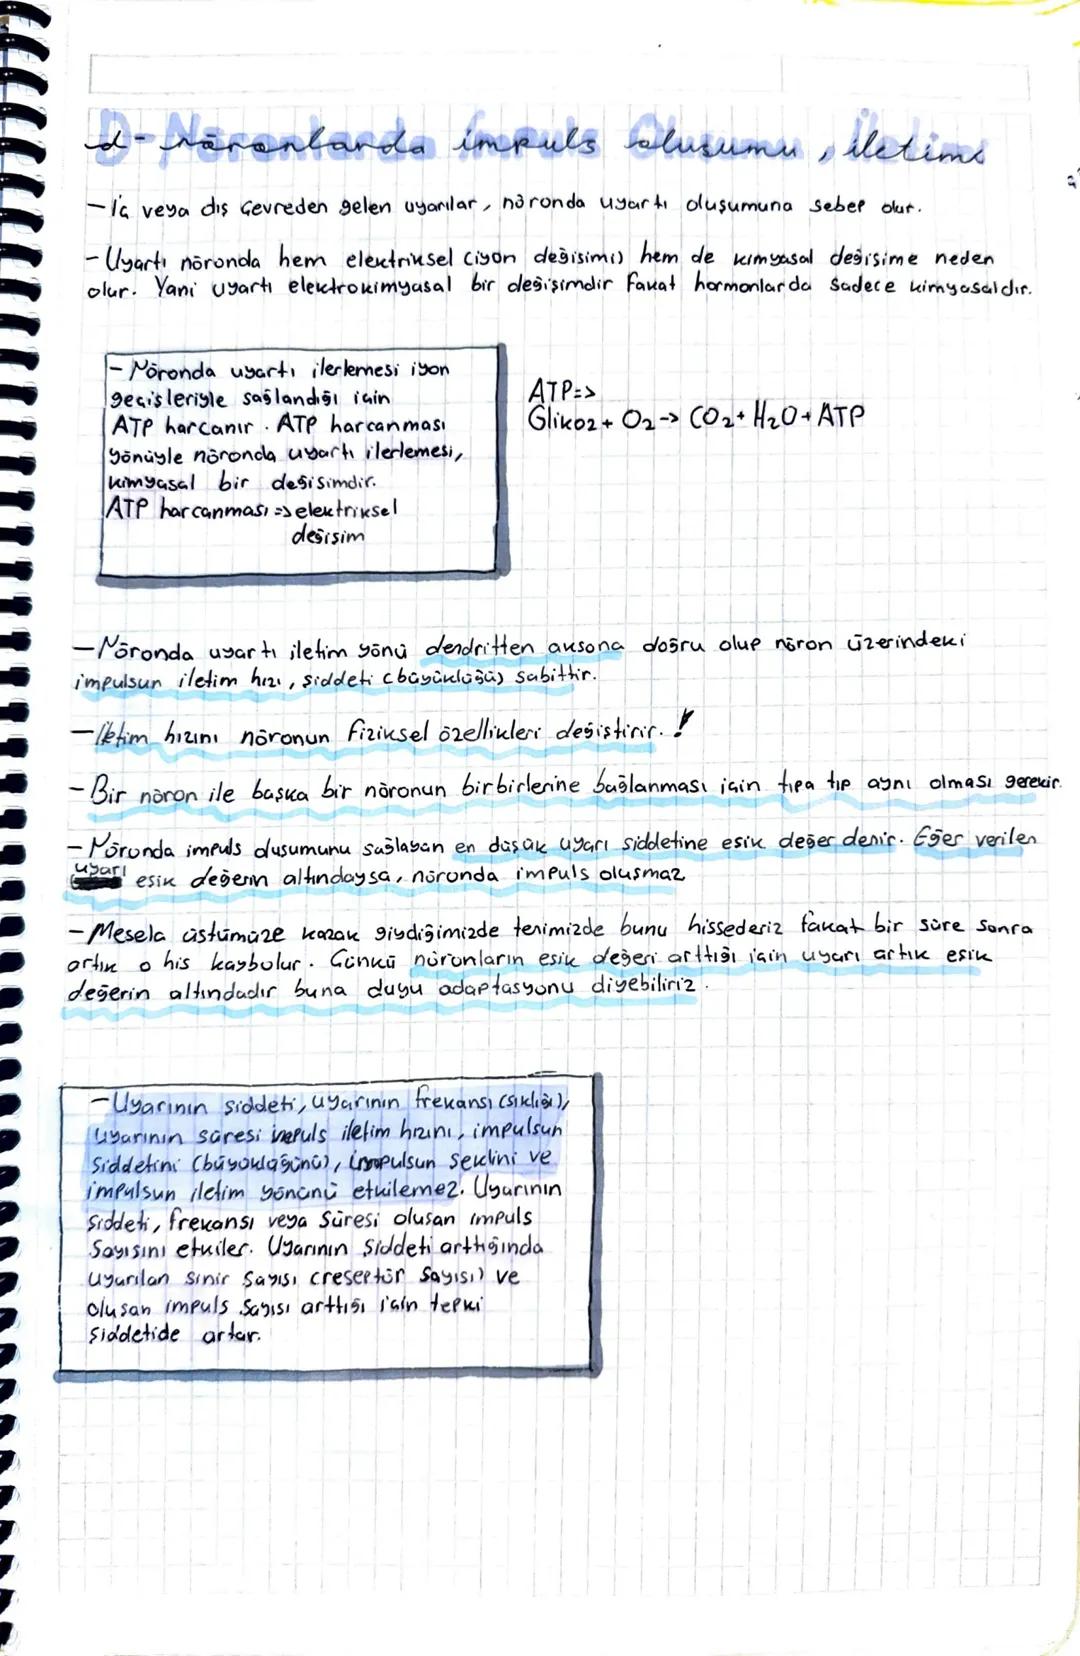 d- Nöronlarda impuls oluşumu, iletimi
- İç veya dış çevreden gelen uyarılar, nöronda uyartı oluşumuna sebep olur.
- Uyartı nöronda hem elektriksel (iyon değişimi) hem de kimyasal değişime neden
olur. Yani uyartı elektrokimyasal bir değişimdir fakat hormonlarda sadece kimyasaldır.
- Nöronda uyartı ilerlemesi iyon
geçişleriyle sağlandığı için
ATP harcanır. ATP harcanması
yönüyle nöronda uyartı ilerlemesi,
kimyasal bir değişimdir.
ATP harcanması => elektriksel
değişim
ATP=>
Glikoz + O2 -> CO2 + H2O + ATP
- Nöronda uyartı iletim yönü dendritten aksona doğru olup nöron üzerindeki
impulsun iletim hızı, şiddeti (büyüklüğü) sabittir.
- İletim hızını nöronun fiziksel özellikleri değiştirir. !
- Bir nöron ile başka bir nöronun birbirlerine bağlanması için tıpa tıp aynı olması gerekir.
- Nöronda impuls oluşumunu sağlayan en düşük uyarı şiddetine eşik değer denir. Eğer verilen
uyarı eşik değerin altındaysa, nöronda impuls oluşmaz
- Mesela üstümüze kazak giydiğimizde tenimizde bunu hissederiz fakat bir süre sonra
artık o his kaybolur. Çünkü nöronların eşik değeri arttığı için uyarı artık eşik
değerin altındadır buna duyu adaptasyonu diyebiliriz.
- Uyarının şiddeti, uyarının frekansı (sıklığı),
uyarının süresi impuls iletim hızını, impulsun
şiddetini (büyüklüğünü), impulsun şeklini ve
impulsun iletim yönünü etkilemez. Uyarının
şiddeti, frekansı veya süresi oluşan impuls
sayısını etkiler. Uyarının şiddeti arttığında
uyarılan sinir sayısı (reseptör sayısı) ve
oluşan impuls sayısı arttığı için tepki
şiddetide artar.